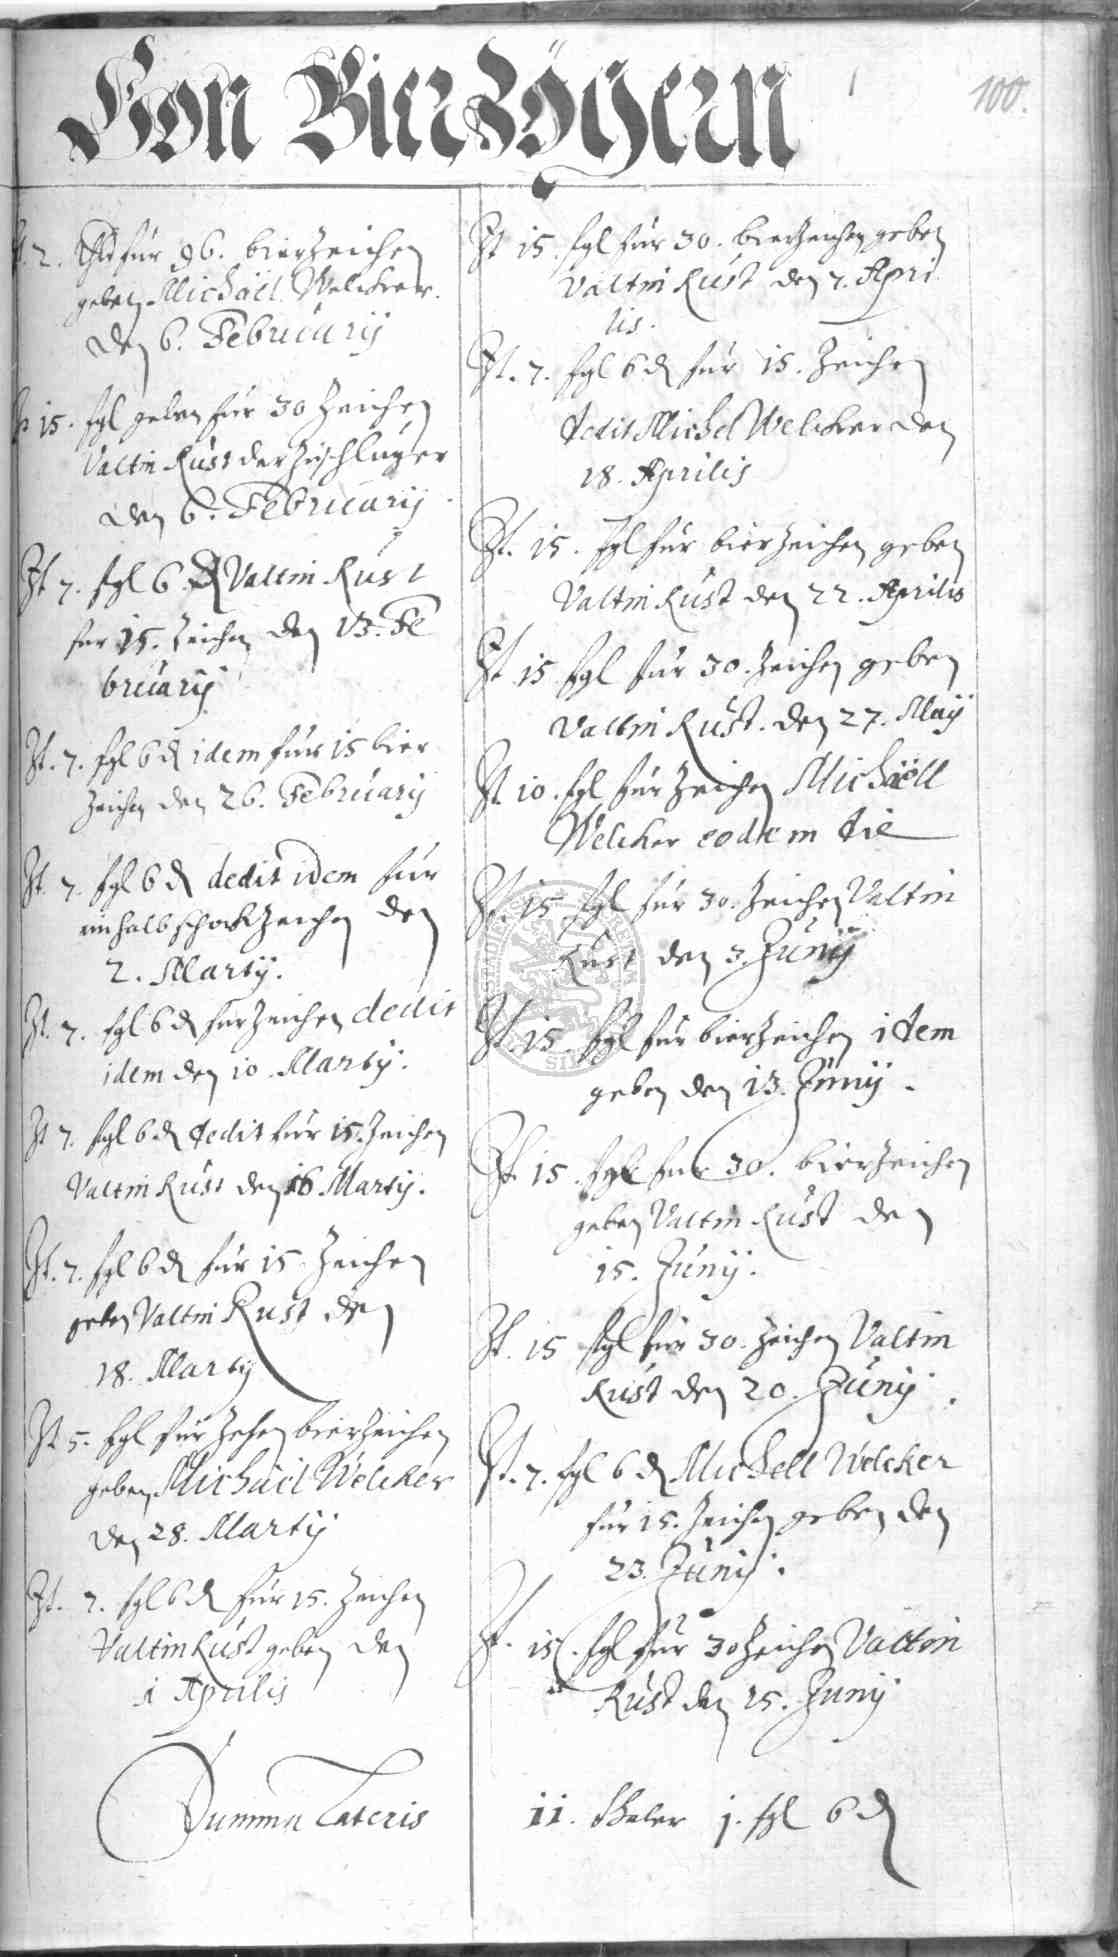 Von Bierzögern
100.
It. 2. für 96. bierzeichen
geben Michäel Welcker.
den 6. Februarij
It 15. sgl geben für 30 Zeichen
Valtin Rust der Zuschläger
den 6. Februarij.
It 7. sgl 6 d Valtin Rust
für 15. Zeichen den 13. Fe
bruarij
It. 7. sgl 6 d idem für 15 bier
Zeichen den 26. Februarij
It. 7. sgl 6 d dedit idem für
ein halb schock Zeichen den
2. Martij.
It. 7. sgl 6 d für Zeichen dedit
idem den 10. Martij.
It 7. sgl 6 d dedit für 15. Zeichen
Valtin Rust den 16 Martij.
It. 7. sgl 6 d für 15. Zeichen
geben Valtin Rust den
18. Martij
It 5. sgl für Zehen bierzeichen
geben Michäel Welcker
den 28. Martij
It. 7. sgl 6 d für 15. Zeichen
Valtin Rust geben den
1 Aprilis
It 15. sgl für 30. bierzeichen geben
Valtin Rust den 7. Apri
lis.
It. 7. sgl 6 d für 15. Zeichen
dedit Michel Welcker den
18. Aprilis
It. 15. sgl für bierzeichen geben
Valtin Rust den 22. Aprilis
It 15 sgl für 30. Zeichen geben
Valtin Rust. den 27. Maij
It. 10. sgl für Zeichen Michäell
Welcker eodem die
It. 15 sgl für 30. Zeichen Valtin
Rust den 3. Junij
It. 15. sgl für bierzeichen idem
geben den 13. Junij.
It. 15. sgl für 30. bierzeichen
geben Valtin Rust den
15. Junij.
It. 15 sgl für 30. Zeichen Valtin
Rust den 20. Junij.
It. 7. sgl 6 d Michell Welcker
für 15. Zeichen geben den
23. Junij.
It. 15. sgl für 30 Zeichen Valtin
Rust den 25. Junij
Summa Lateris 11. thaler 1. sgl 6 d